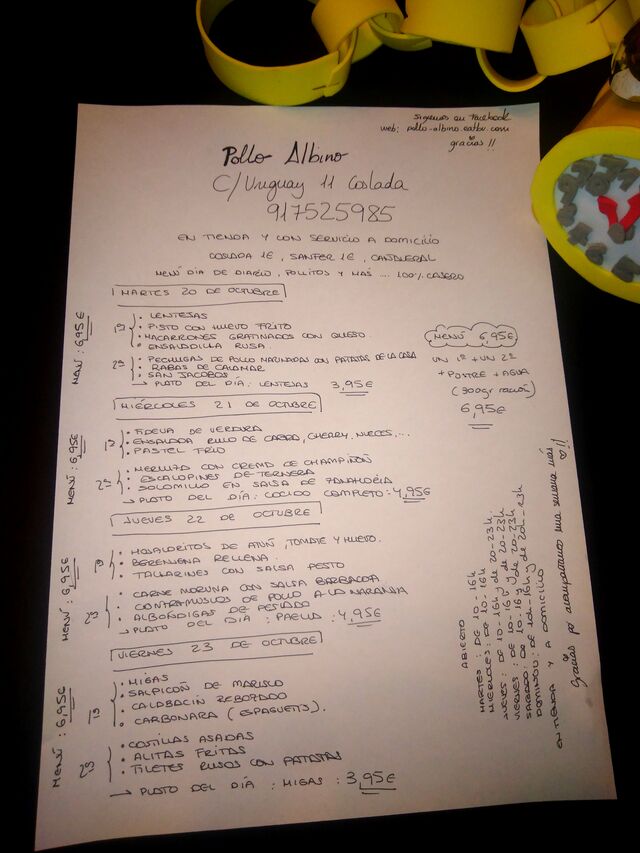 Siguenos en Facebook
web: pollo-albino.eatbu.com
gracias!!
Pollo Albino
C/ Uruguay 11 Coslada
917525985
EN TIENDA Y CON SERVICIO A DOMICILIO
COSLADA 1€, SANFER 1€, CAÑAVERAL
MENÚ DIA DE DIARIO, POLLITOS Y MAS .... 100% CASERO
MARTES 20 DE OCTUBRE
MENÚ: 6,95€
1º
· LENTEJAS
· PISTO CON HUEVO FRITO
· MACARRONES GRATINADOS CON QUESO.
· ENSALADILLA RUSA.
2º
· PECHUGAS DE POLLO MARINADAS CON PATATAS DE LA CASA
· RABAS DE CALAMAR
· SAN JACOBOS
→ PLATO DEL DÍA: LENTEJAS 3,95€
MENÚ 6,95€
UN 1º + UN 2º
+ POSTRE + AGUA
(300gr ración)
6,95€
MIÉRCOLES 21 DE OCTUBRE
MENÚ: 6,95€
1º
· FIDEUA DE VERDURA
· ENSALADA RULO DE CABRA, CHERRY, NUECES, ...
· PASTEL FRIO
2º
· MERLUZA CON CREMA DE CHAMPIÑÓN
· ESCALOPINES DE TERNERA
· SOLOMILLO EN SALSA DE ZANAHORIA
→ PLATO DEL DÍA: COCIDO COMPLETO: 4,95€
JUEVES 22 DE OCTUBRE
MENÚ: 6,95€
1º
· HOJALDRITOS DE ATÚN, TOMATE Y HUEVO.
· BERENJENA RELLENA.
· TALLARINES CON SALSA PESTO
2º
· CARNE MORUNA CON SALSA BARBACOA
· CONTRAMUSLOS DE POLLO A LA NARANJA
· ALBÓNDIGAS DE PESCADO
→ PLATO DEL DÍA: PAELLA: 4,95€
VIERNES 23 DE OCTUBRE
MENÚ: 6,95€
1º
· MIGAS
· SALPICÓN DE MARISCO
· CALABACÍN REBOZADO
· CARBONARA (ESPAGUETIS).
2º
· COSTILLAS ASADAS
· ALITAS FRITAS
· FILETES RUSOS CON PATATAS
→ PLATO DEL DÍA: MIGAS: 3,95€
ABIERTO
MARTES: DE 10-16h
MIÉRCOLES: DE 10-16h
JUEVES: DE 10-16h y de 20-23h.
VIERNES: DE 10-16h y de 20-23h
SABADO: DE 10-16h y de 20-23h
DOMINGO: DE 10h-16h y de 20h-23h
EN TIENDA Y A DOMICILIO
Gracias por acompañarnos una semana más!!